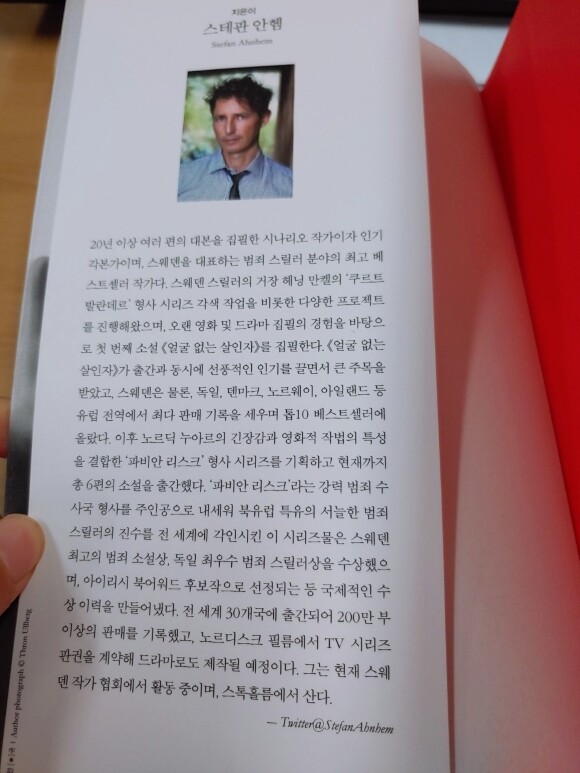 지은이
스테판 안헴
Stefan Ahnhem
20년 이상 여러 편의 대본을 집필한 시나리오 작가이자 인기
각본가이며, 스웨덴을 대표하는 범죄 스릴러 분야의 최고 베
스트셀러 작가다. 스웨덴 스릴러의 거장 헤닝 만켈의 ‘쿠르트
발란데르’ 형사 시리즈 각색 작업을 비롯한 다양한 프로젝트
를 진행해왔으며, 오랜 영화 및 드라마 집필의 경험을 바탕으
로 첫 번째 소설 《얼굴 없는 살인자》를 집필한다. 《얼굴 없는
살인자》가 출간과 동시에 선풍적인 인기를 끌면서 큰 주목을
받았고, 스웨덴은 물론, 독일, 덴마크, 노르웨이, 아일랜드 등
유럽 전역에서 최다 판매 기록을 세우며 톱10 베스트셀러에
올랐다. 이후 노르딕 누아르의 긴장감과 영화적 작법의 특성
을 결합한 ‘파비안 리스크’ 형사 시리즈를 기획하고 현재까지
총 6편의 소설을 출간했다. ‘파비안 리스크’라는 강력 범죄 수
사국 형사를 주인공으로 내세워 북유럽 특유의 서늘한 범죄
스릴러의 진수를 전 세계에 각인시킨 이 시리즈물은 스웨덴
최고의 범죄 소설상, 독일 최우수 범죄 스릴러상을 수상했으
며, 아이리시 북어워드 후보작으로 선정되는 등 국제적인 수
상 이력을 만들어냈다. 전 세계 30개국에 출간되어 200만 부
이상의 판매를 기록했고, 노르디스크 필름에서 TV 시리즈
판권을 계약해 드라마로도 제작될 예정이다. 그는 현재 스웨
덴 작가 협회에서 활동 중이며, 스톡홀름에서 산다.
— Twitter@StefanAhnhem
Author photograph © Thron Ullberg